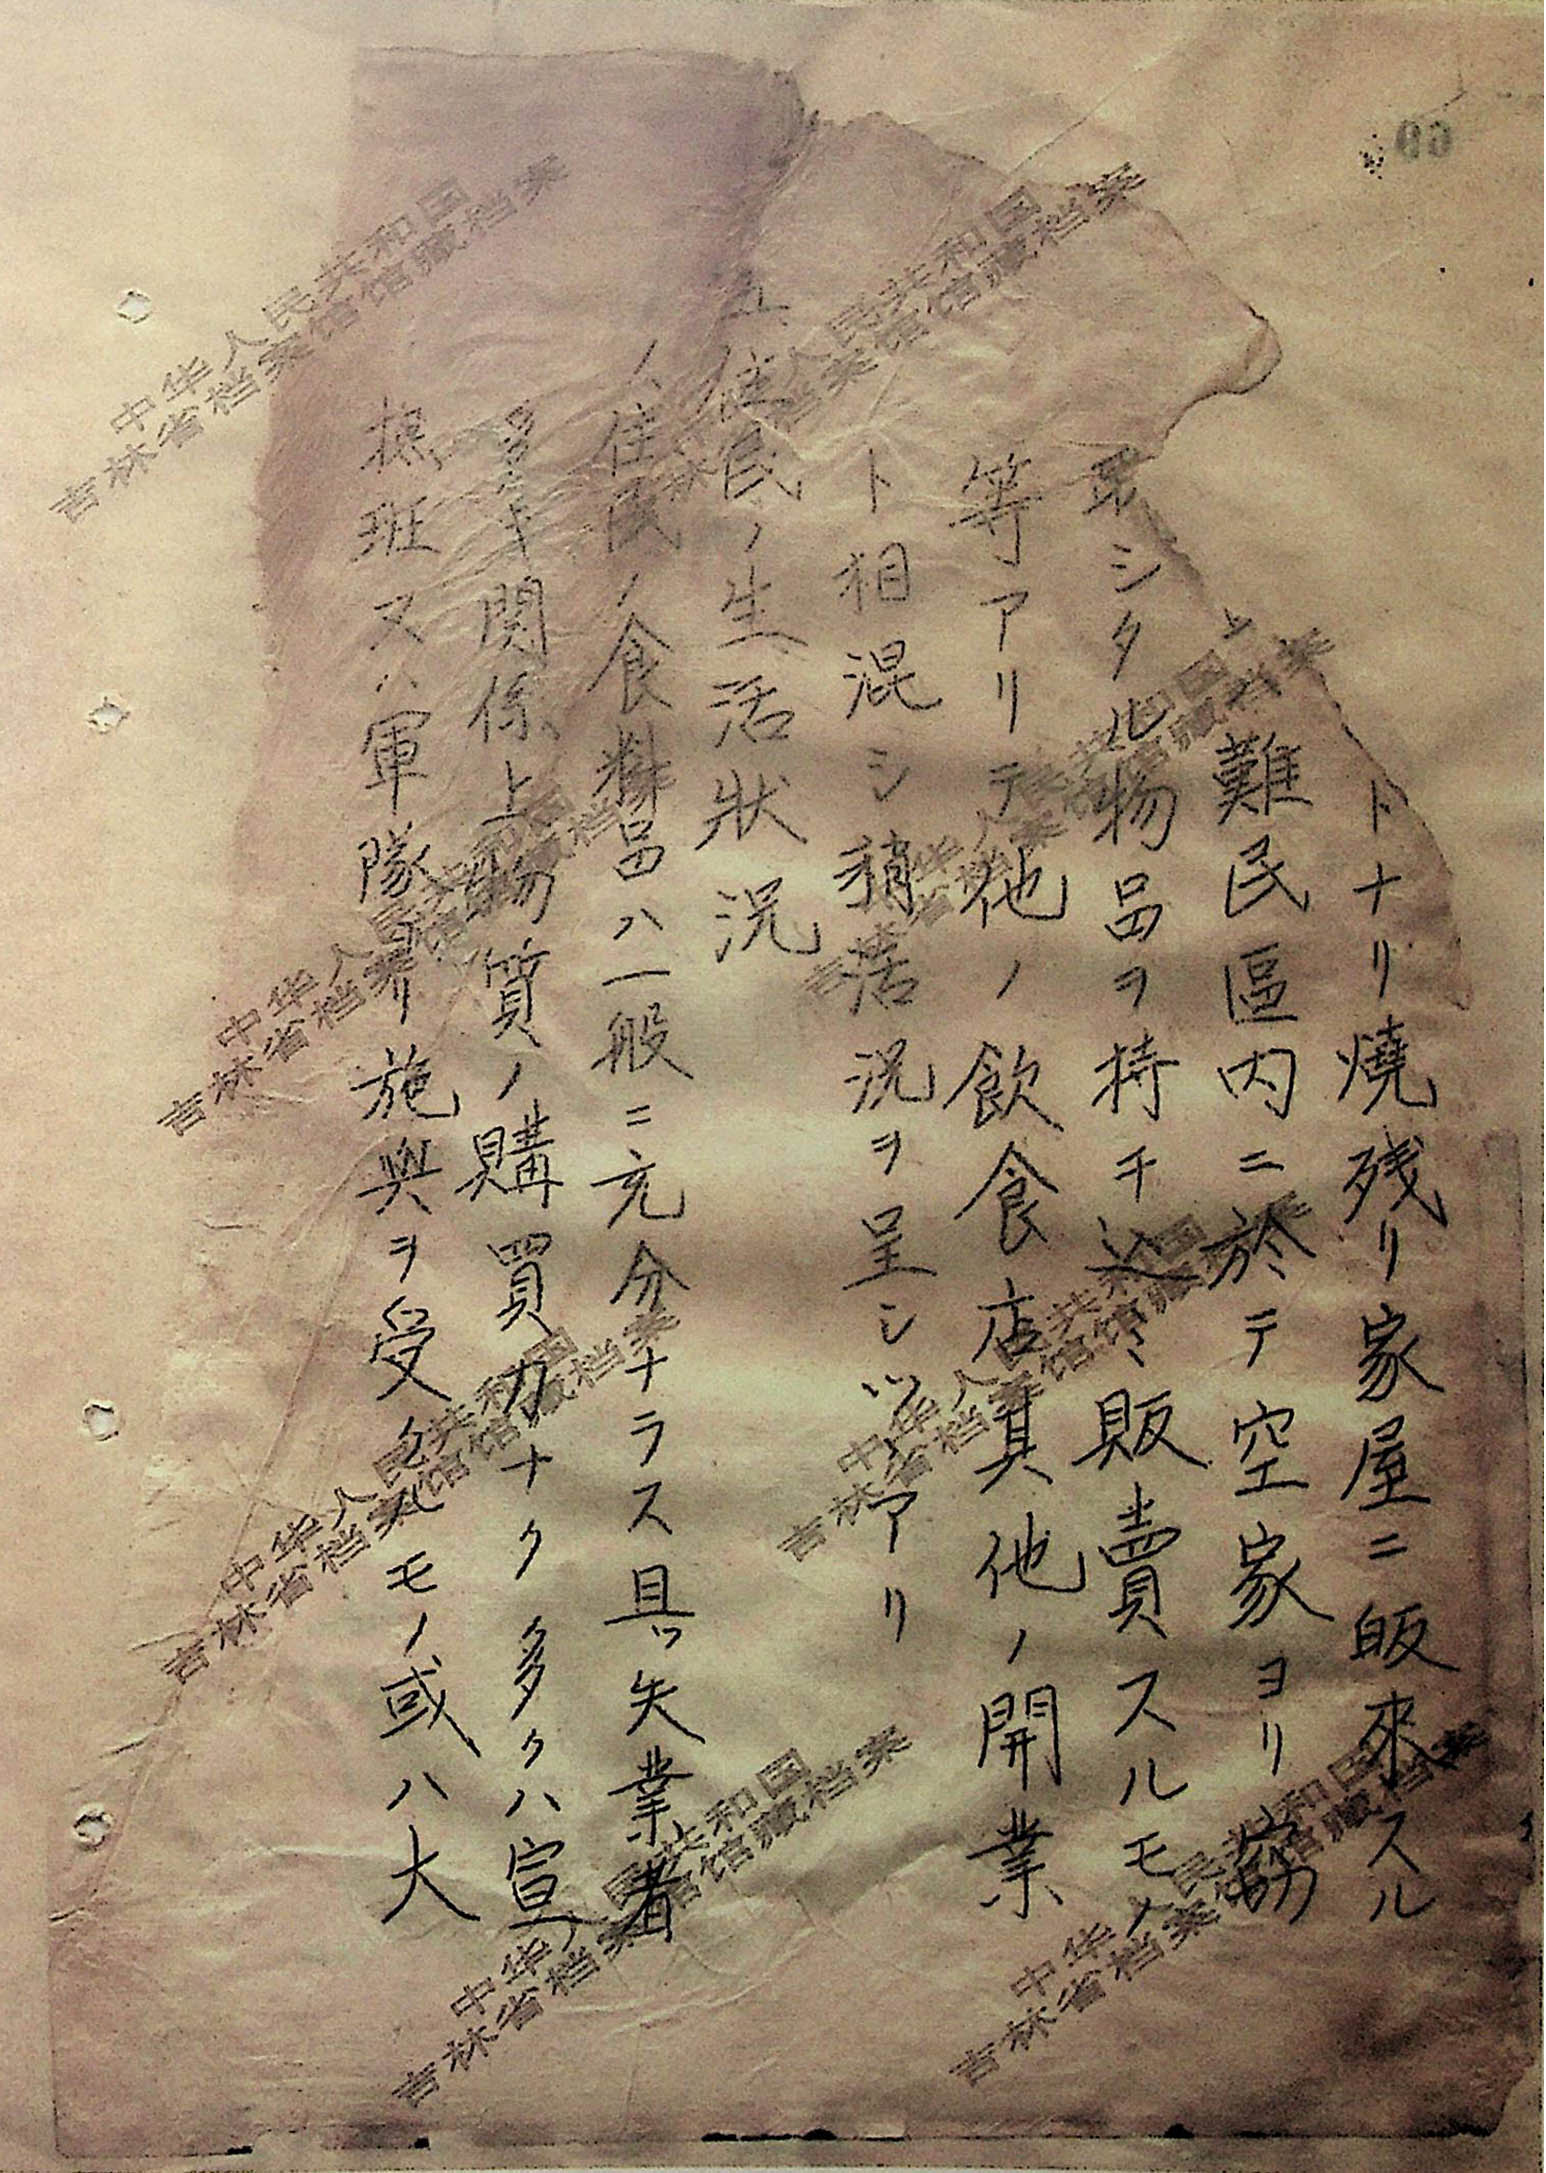 トナリ燒残リ家屋ニ皈來スル
難民區内ニ於テ空家ヨリ窃
取シタル物品ヲ持チ込ミ販賣スルモノ
等アリテ他ノ飲食店其他ノ開業
ト相混シ稍活況ヲ呈シツヽアリ
五、住民ノ生活狀况
住民ノ食糧品ハ一般ニ充分ナラス且ツ失業者
多キ関係上物質ノ購買力ナク多クハ宣
撫班又ハ軍隊ヨリ施與ヲ受クルモノ或ハ大
中华人民共和国
吉林省档案馆馆藏档案
60